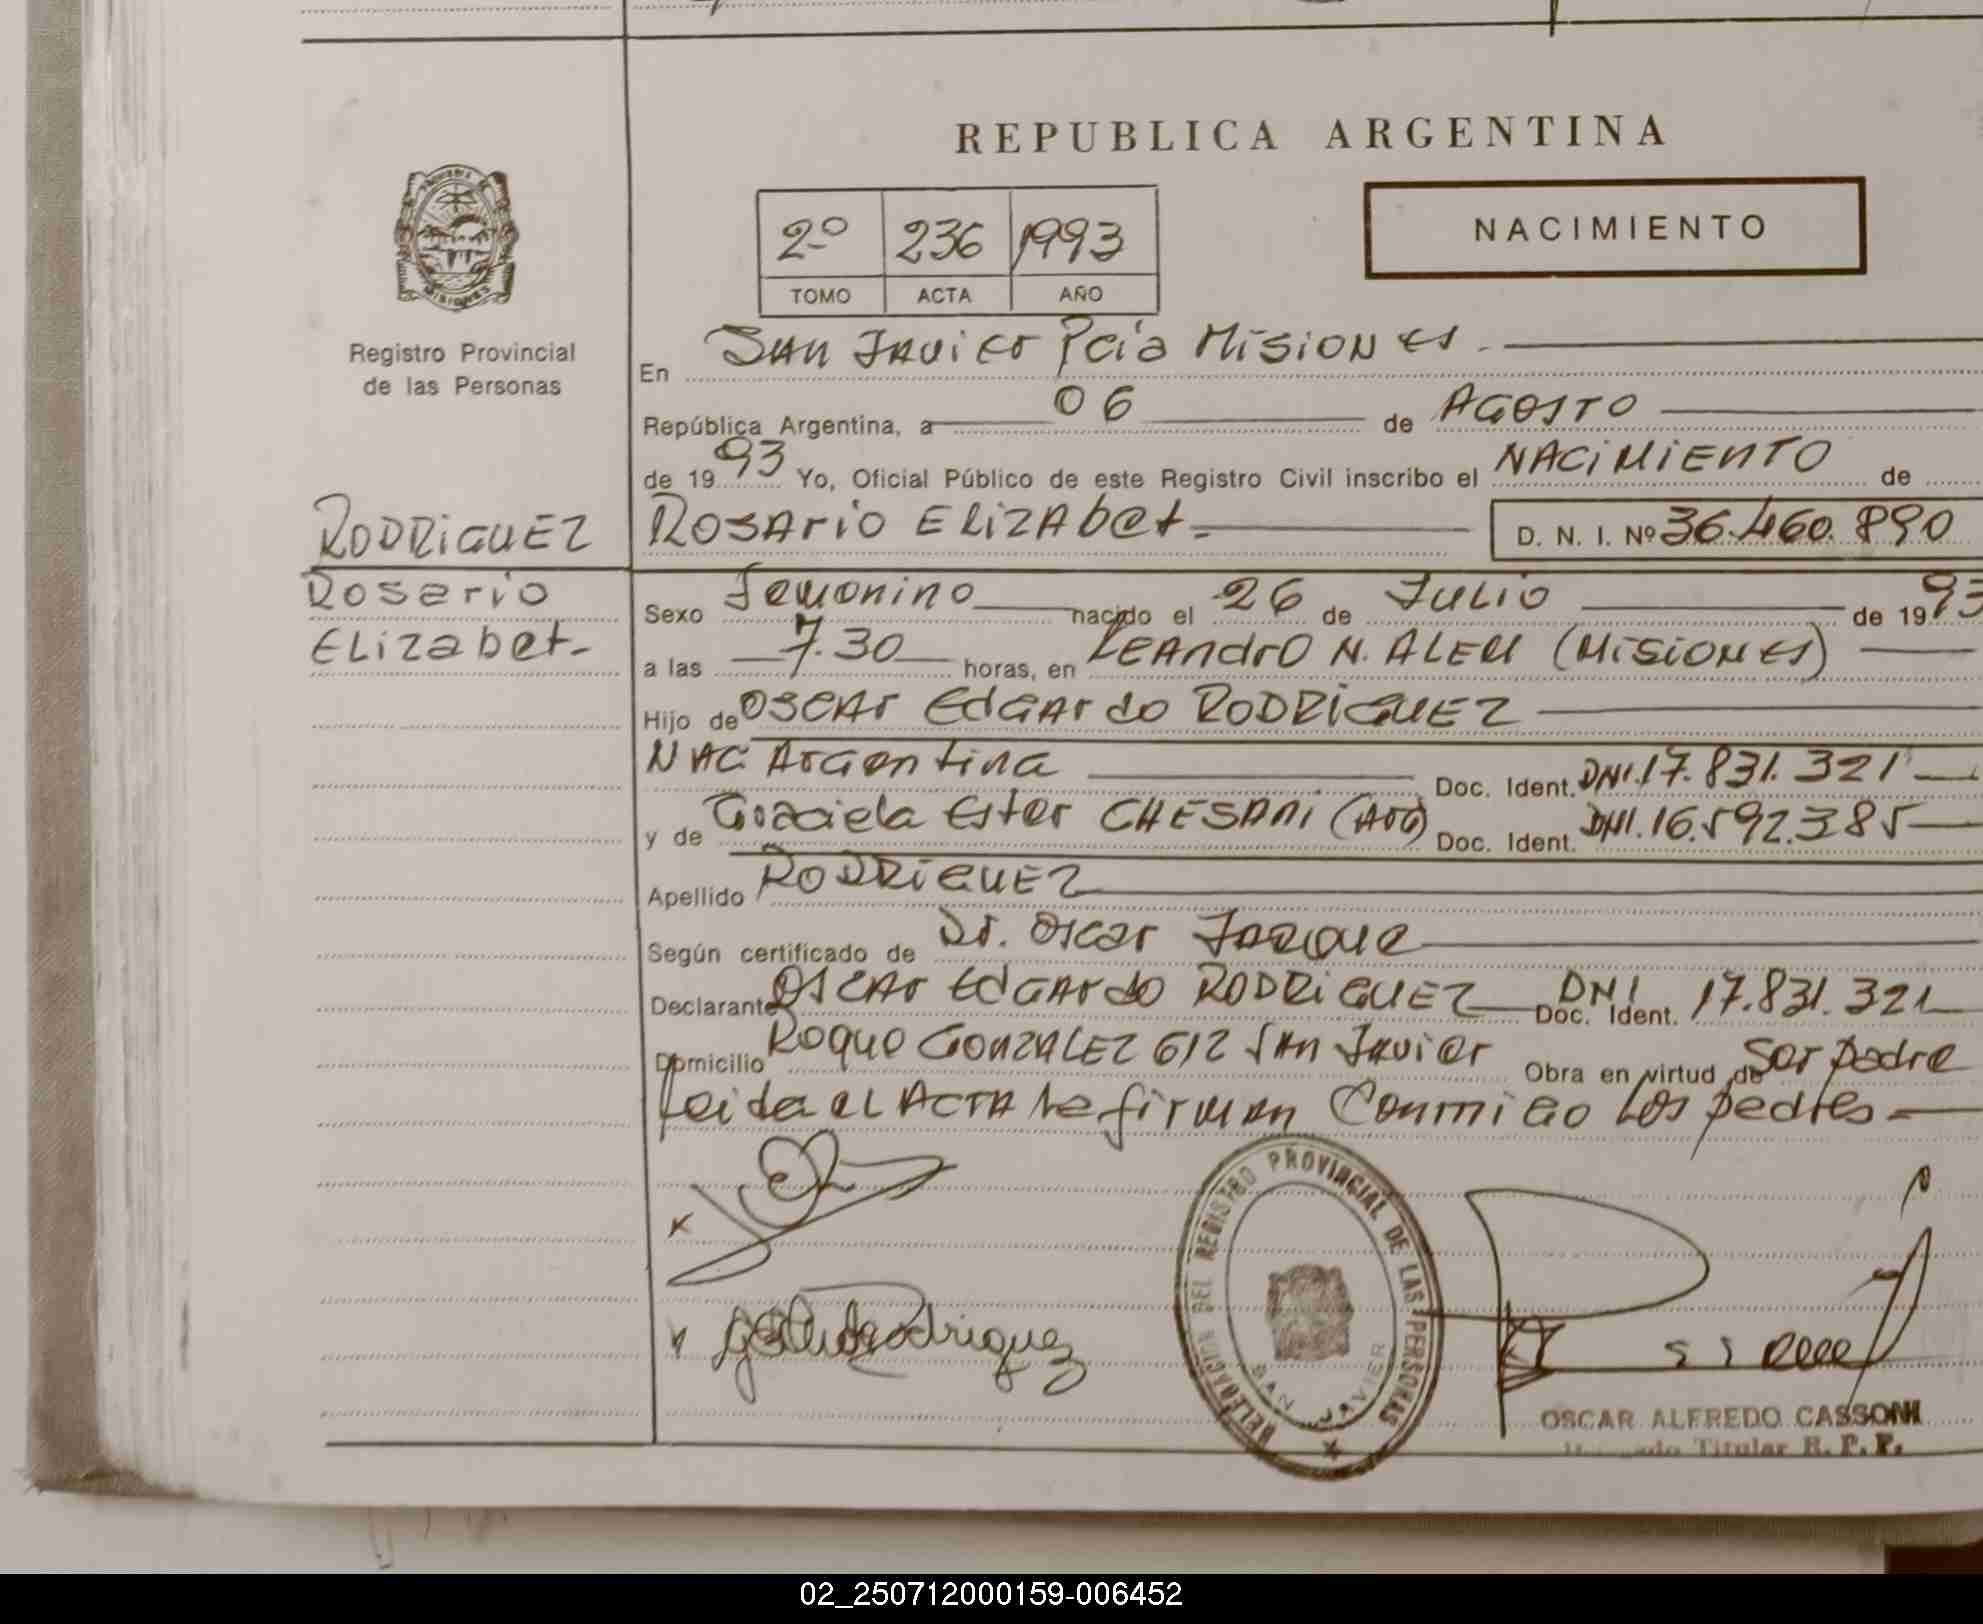 REPUBLICA ARGENTINA
NACIMIENTO
2º 236 1993
TOMO ACTA AÑO
MISIONES
Registro Provincial
de las Personas
En San Javier Pcia Misiones.
República Argentina, a 06 de Agosto
de 1993 Yo, Oficial Público de este Registro Civil inscribo el NACIMIENTO de
RODRIGUEZ
Rosario
Elizabet-
ROSArio ELIZAbet=
D. N. I. Nº 36.460.890
Sexo Femenino nacido el 26 de Julio de 1993
a las 7.30 horas, en LEANdrO N. ALEM (MiSiONes)
Hijo de OSCAr EdGArdo RODRiGUEZ
NAC ArGentina Doc. Ident. DNI.17.831.321
y de Graciela Ester CHESANi (ArG) Doc. Ident. DNI.16.592.385
Apellido RODRiGUEZ
Según certificado de Dr. Oscar
Declarante OSCAr EdGArdo RODRiGUEZ DNI Doc. Ident. 17.831.321
Domicilio Roque GONZALEZ 612 SAn Javier Obra en virtud de Ser padre
Leida el ACTA la firman Conmigo Los padres-
x
Rodriguez
DELEGACION DEL REGISTRO PROVINCIAL DE LAS PERSONAS
SAN JAVIER
OSCAR ALFREDO CASSONI
Titular R. P. P.
02_250712000159-006452